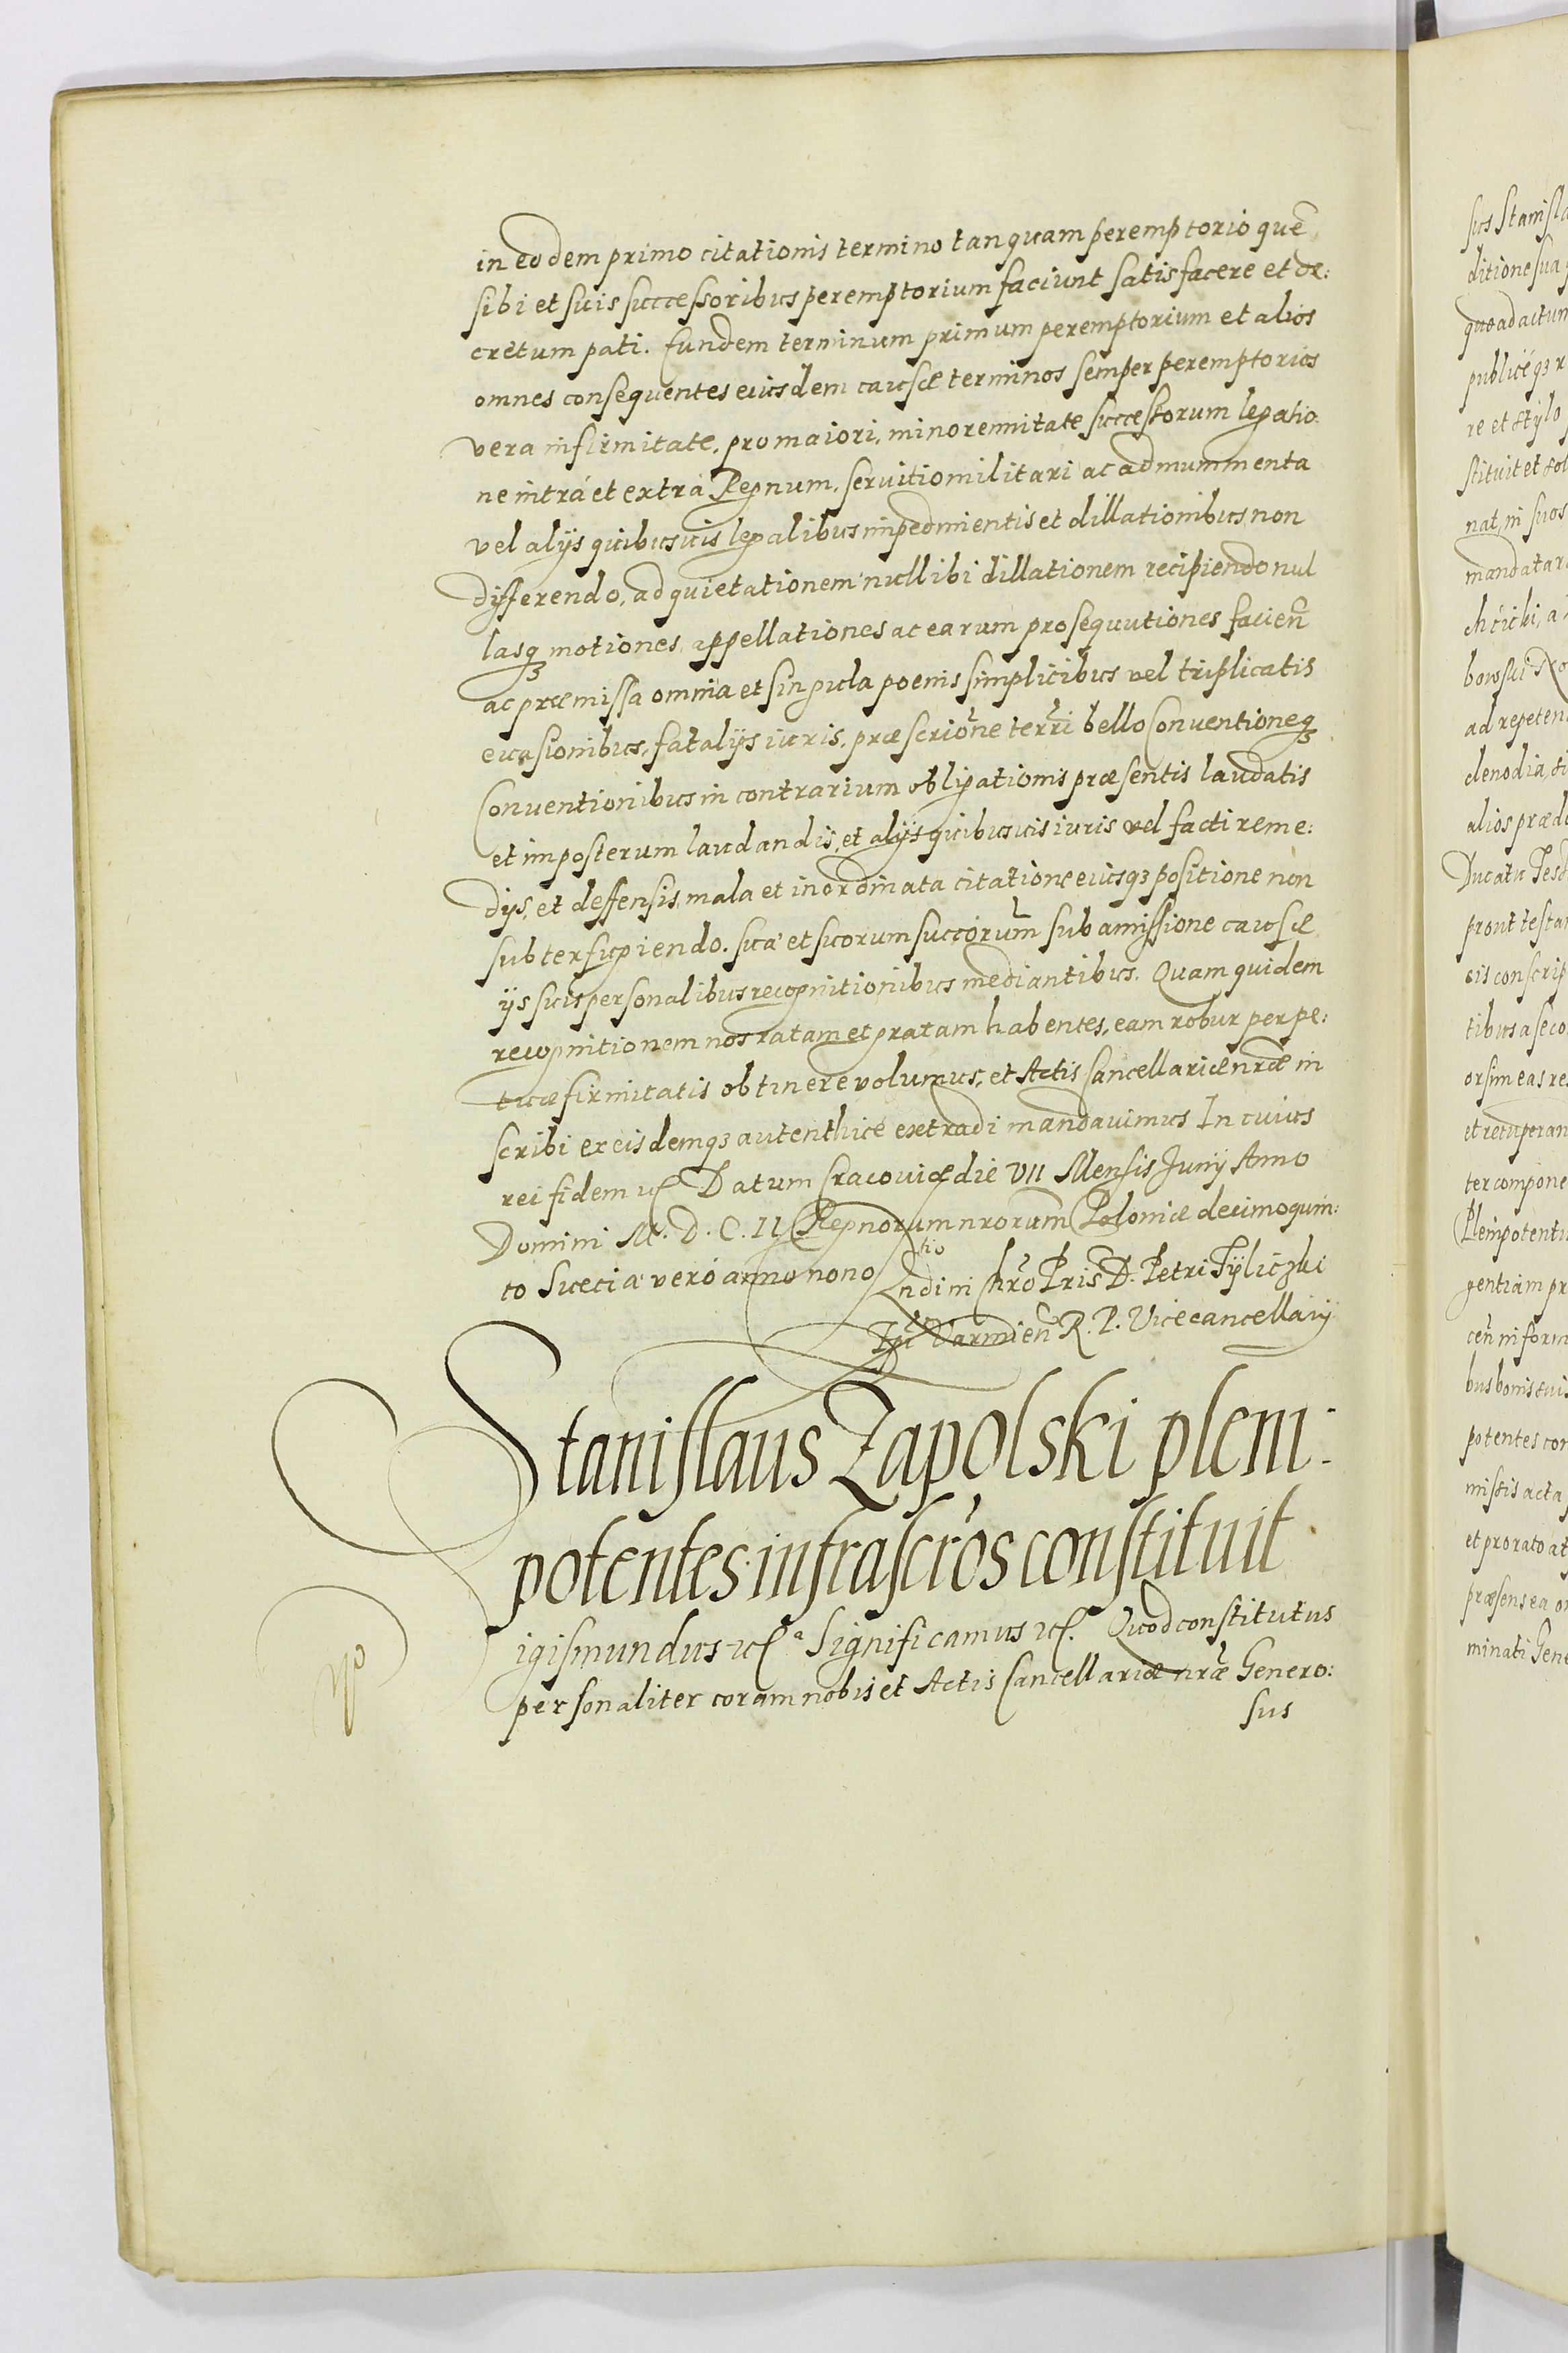 in eodem primo citationis termino tanquam peremptorio quē
sibi et suis successoribus peremptorium faciunt satisfacere et de:
cretum pati. Eundem terminum primum peremptorium et alios
omnes consequentes eiusdem causæ terminos semper peremptorios
vera infirmitate, pro maiori, minorennitate successorum legatio
ne intrá et extrá Regnum, seruitio militari ac ad mummenta
vel alijs quibusuis legalibus impedmientis et dillationibus non
differendo, ad quietationem nullibi dillationem recipiendo nul
lasqꝫ motiones, appellationes ac earum prosequutiones facien̄
ac præmissa omnia et singula poenis simplicibus vel triplicatis
euasionibus, fatalijs iuris, præscrio͠ne terr͠i bello Conventioneqꝫ
Conventionibus in contrarium obligationis præsentis laudatis
et imposterum laudandis, et alijs quibusuis iuris vel facti reme:
dijs, et deffensis, mala et inordinata citatione eiusqꝫ positione non
subterfugiendo. suæ et suorum succo͠rum sub amissione causæ
ijs suis personalibus recognitionibus mediantibus. Quam quidem
recognitionem nos ratam et gratam habentes, eam robur perpe:
tuæ firmitatis obtinere volumus, et Actis Cancellariæ nr͠æ in
scribi ex eisdemqꝫ autenthicé extradi mandauimus In cuius
rei fidem ꝛc̃ Datum Cracouiæ die VII Mensis Junij Anno
Domini M. D. C. II Regnorum nrorum Poloniæ decimoquin:
to Sueciæ veró anno nono
R͠ndi in Chr͠o Pris D. Petri Tÿliczki
Varmien̄ R. P. Vicecancellarij
Stanislaus Zapolski pleni-
potentes infrascr͠os constituit
igismundus ꝛc̃ª Significamus ꝛc̃. Quod constitutus
personaliter coram nobis et Actis Cancellariæ nr͠æ Genero:
sus
sus Stanisla
ditione sua
quo ad actum
publicéqꝫ r
re et stylo
stituit et sol
nat, in suos
mandatar
ad repeten
clenodia, si
alios præd
Ducatu Tesc
prout testa
eis conscrip
tibus a seco
orsim eas re
et recuperan
ter compone
Plenipotenti
gentiam pr
cen̄ in form
bus bonis suis
potentes con
missis acta
et pro rato at
præsens ea o
minati Gene